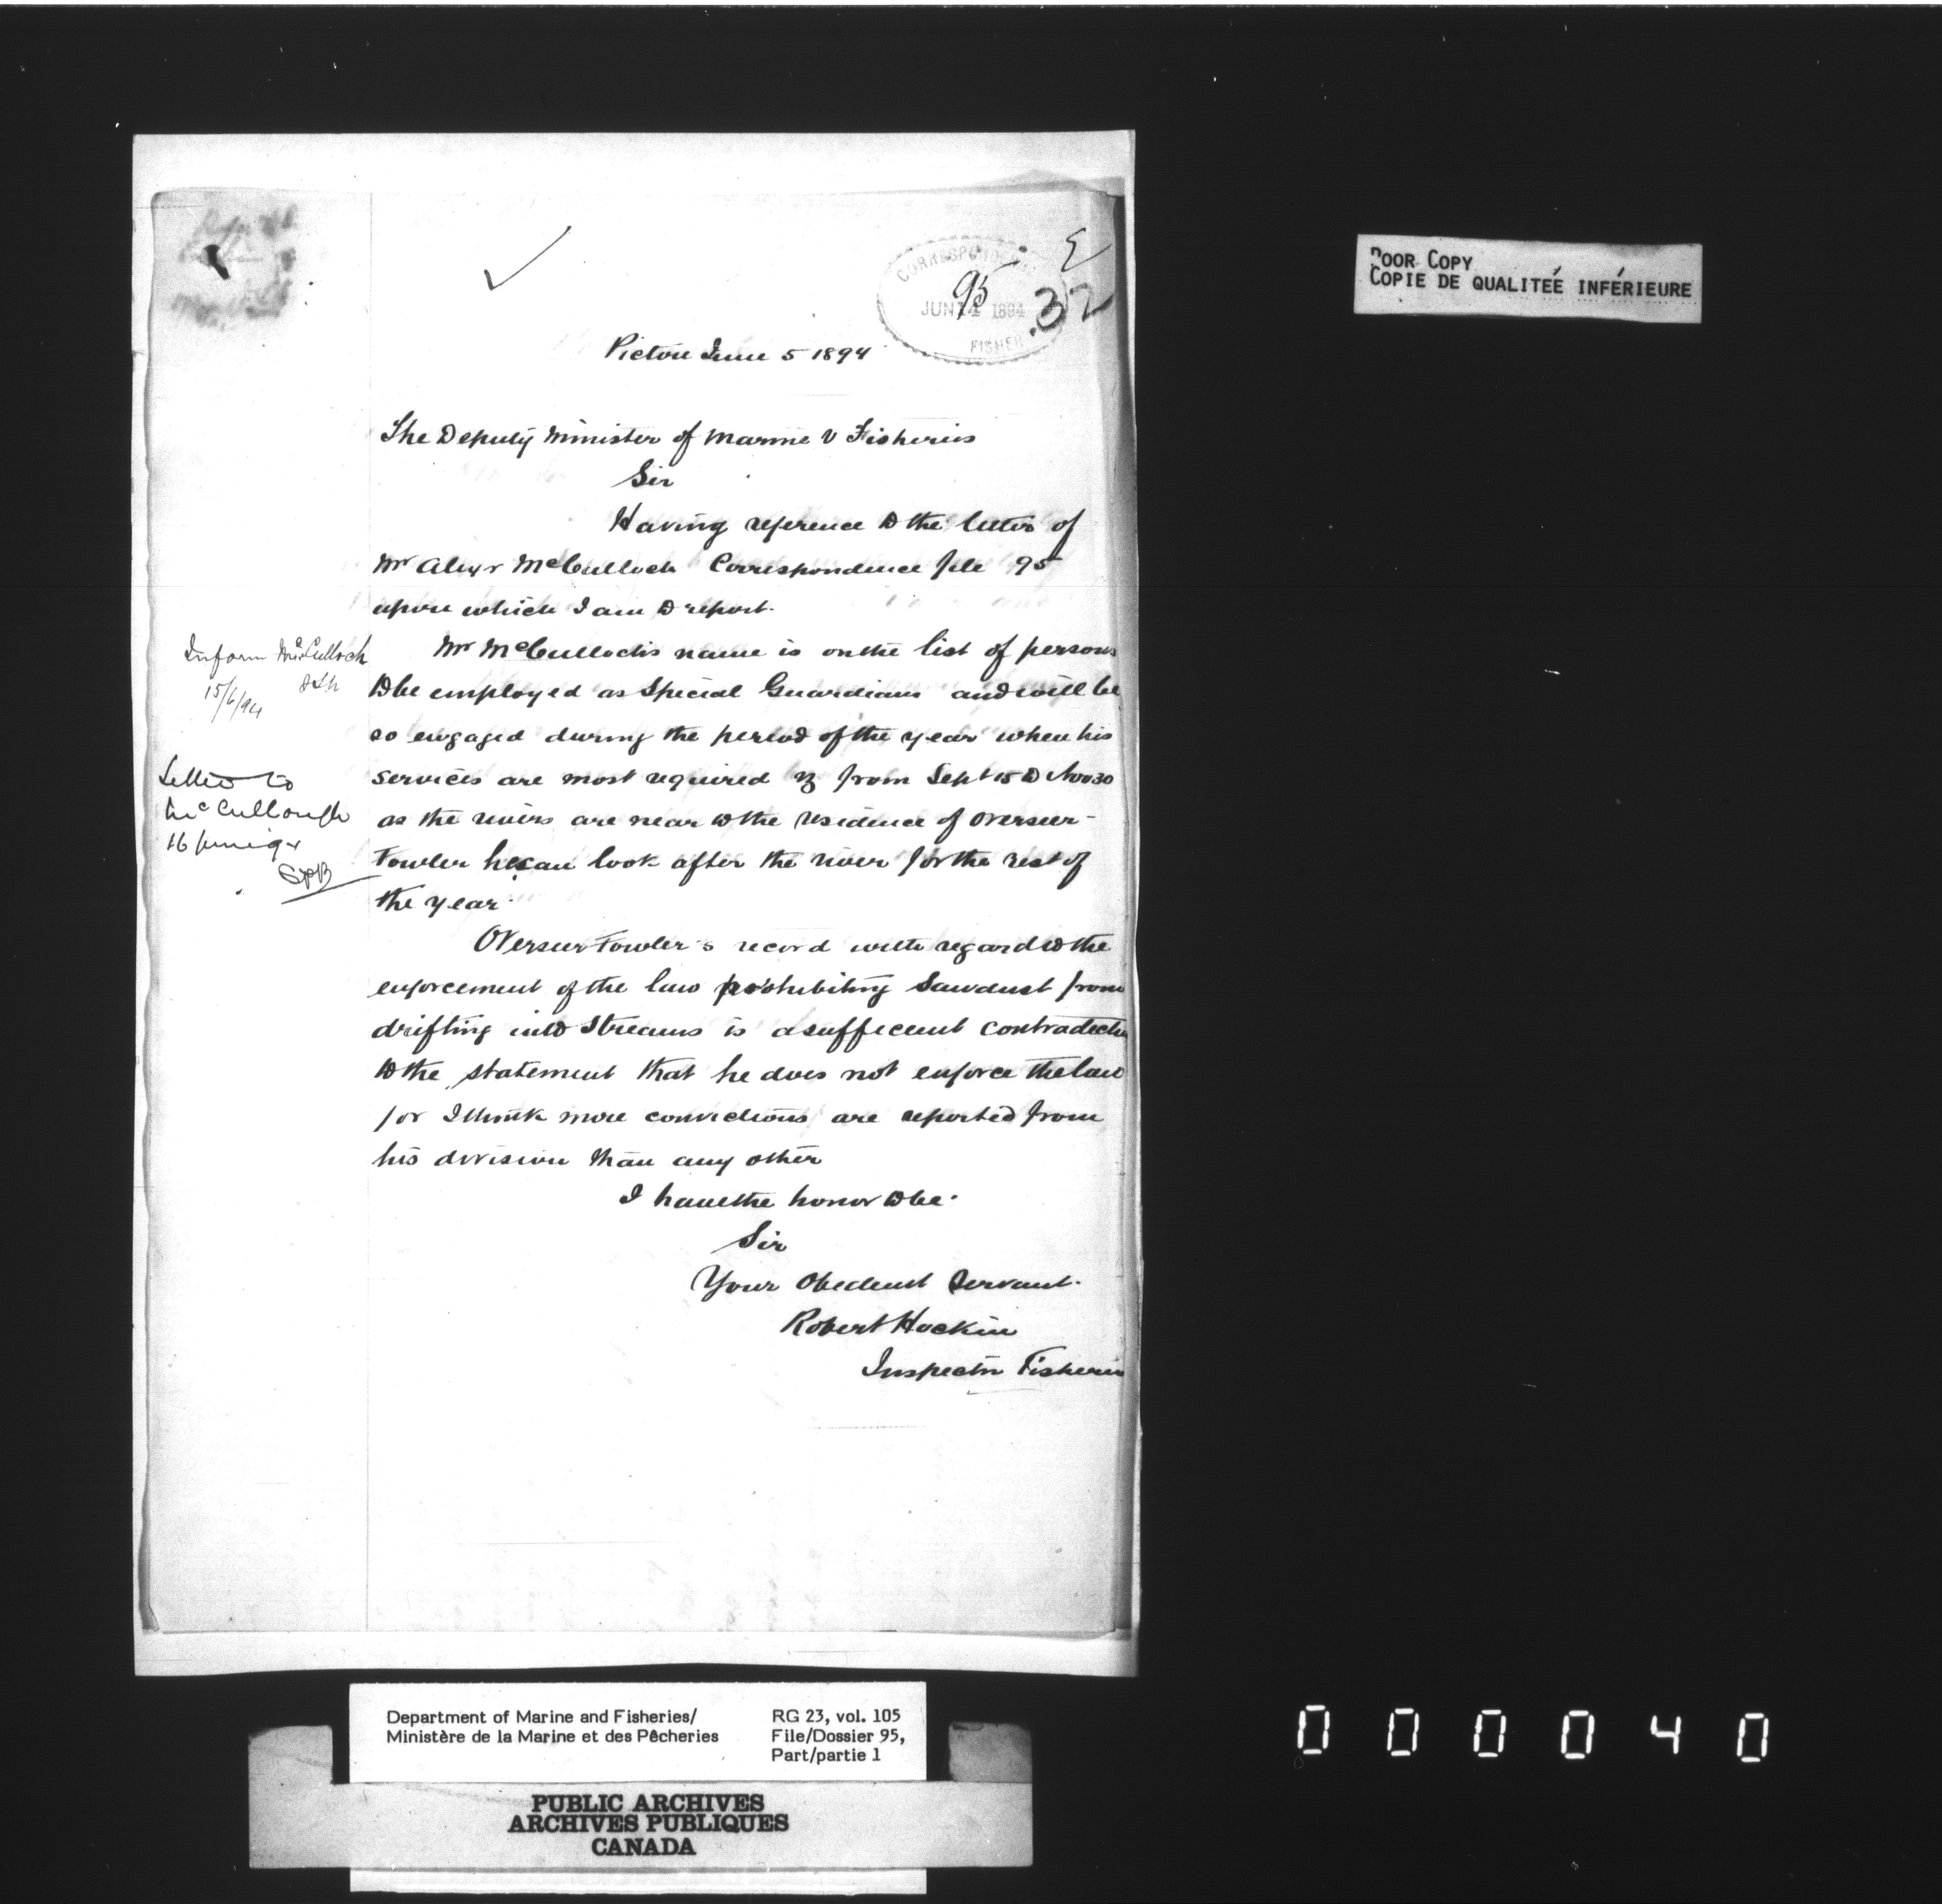 CORRESPONDENCE
95
JUN 14 1894
FISHER
32
Pictou June 5 1894
The Deputy Minister of Marine & Fisheries
Sir
Having reference to the letter of
Mr Alexr McCulloch Correspondence file 95
upon which I am to report.
Mr McCulloch's name is on the list of persons
to be employed as Special Guardians and will be
so engaged during the period of the year when his
services are most required viz from Sept 15 to Nov 30
as the rivers are near to the residence of Overseer
Fowler he can look after the river for the rest of
the year.
Overseer Fowler's record with regard to the
enforcement of the law prohibiting Sawdust from
drifting into Streams is a sufficient contradiction
to the statement that he does not enforce the law
for I think more convictions are reported from
his division than any other
I have the honor to be.
Sir
Your Obedient Servant.
Robert Hockin
Inspector Fisheries
Inform McCulloch
15/6/94
Letter to
McCullough
16 June 94
SPB
POOR COPY
COPIE DE QUALITEÉ INFÉRIEURE
Department of Marine and Fisheries/
Ministère de la Marine et des Pêcheries
RG 23, vol. 105
File/Dossier 95,
Part/partie 1
PUBLIC ARCHIVES
ARCHIVES PUBLIQUES
CANADA
000040